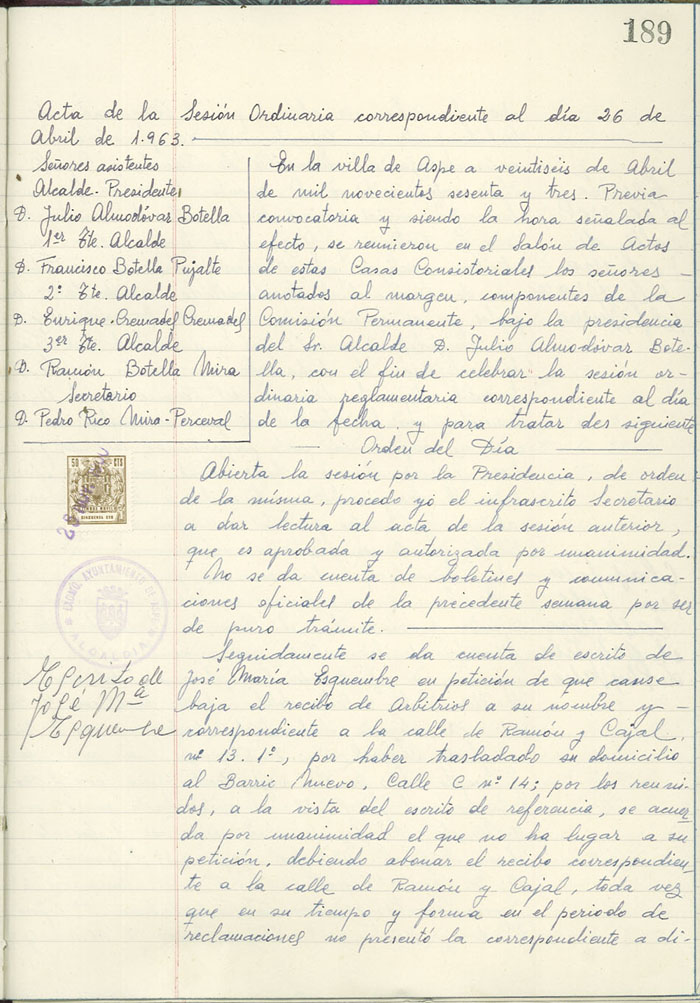 189
Acta de la Sesión Ordinaria correspondiente al día 26 de
Abril de 1.963.
Señores asistentes
Alcalde-Presidente
D. Julio Almodóvar Botella
1er Tte. Alcalde
D. Francisco Botella Pujalte
2º Tte. Alcalde
D. Enrique Cremades Cremades
3er Tte. Alcalde
D. Ramón Botella Mira
Secretario
D. Pedro Rico Mira-Perceval
En la villa de Aspe a veintiseis de Abril
de mil novecientos sesenta y tres. Previa
convocatoria y siendo la hora señalada al
efecto, se reunieron en el Salón de Actos
de estas Casas Consistoriales los señores -
anotados al margen, componentes de la
Comisión Permanente, bajo la presidencia
del Sr. Alcalde D. Julio Almodóvar Bote-
lla, con el fin de celebrar la sesión or-
dinaria reglamentaria correspondiente al día
de la fecha, y para tratar des siguiente
Orden del Día
50 CTS
Abierta la sesión por la Presidencia, de orden
de la misma, procedo yó el infrascrito Secretario
a dar lectura al acta de la sesión anterior,
que es aprobada y autorizada por unanimidad.
No se da cuenta de boletines y comunica-
ciones oficiales de la precedente semana por ser
de puro trámite.
EXCMO. AYUNTAMIENTO DE ASPE
ALCALDIA
Escrito de
José Mª
Esquembre
Seguidamente se da cuenta de escrito de
José María Esquembre en petición de que cause
baja el recibo de Arbitrios a su nombre y -
correspondiente a la calle de Ramón y Cajal,
nº 13. 1º, por haber trasladado su domicilio
al Barrio Nuevo, Calle C nº 14; por los reuni-
dos, a la vista del escrito de referencia, se acuer-
da por unanimidad el que no ha lugar a su
petición, debiendo abonar el recibo correspondien-
te a la calle de Ramón y Cajal, toda vez
que en su tiempo y forma en el periodo de
reclamaciones no presentó la correspondiente a di-